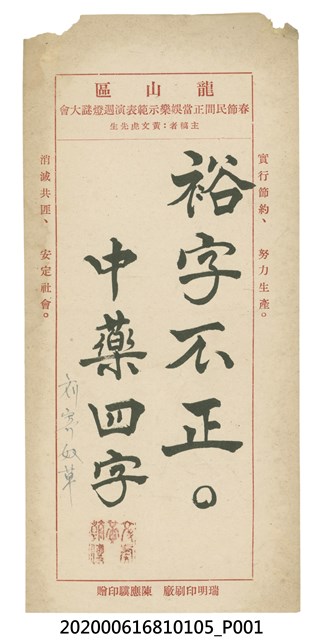 龍山區
春節民間正當娛樂示範表演週燈謎大會
主稿者：黃文虎先生
實行節約、 努力生產。
裕字不正。
中藥四字
消滅共匪、 安定社會。
瑞明印刷廠 陳應印贈
202000616810105_P001